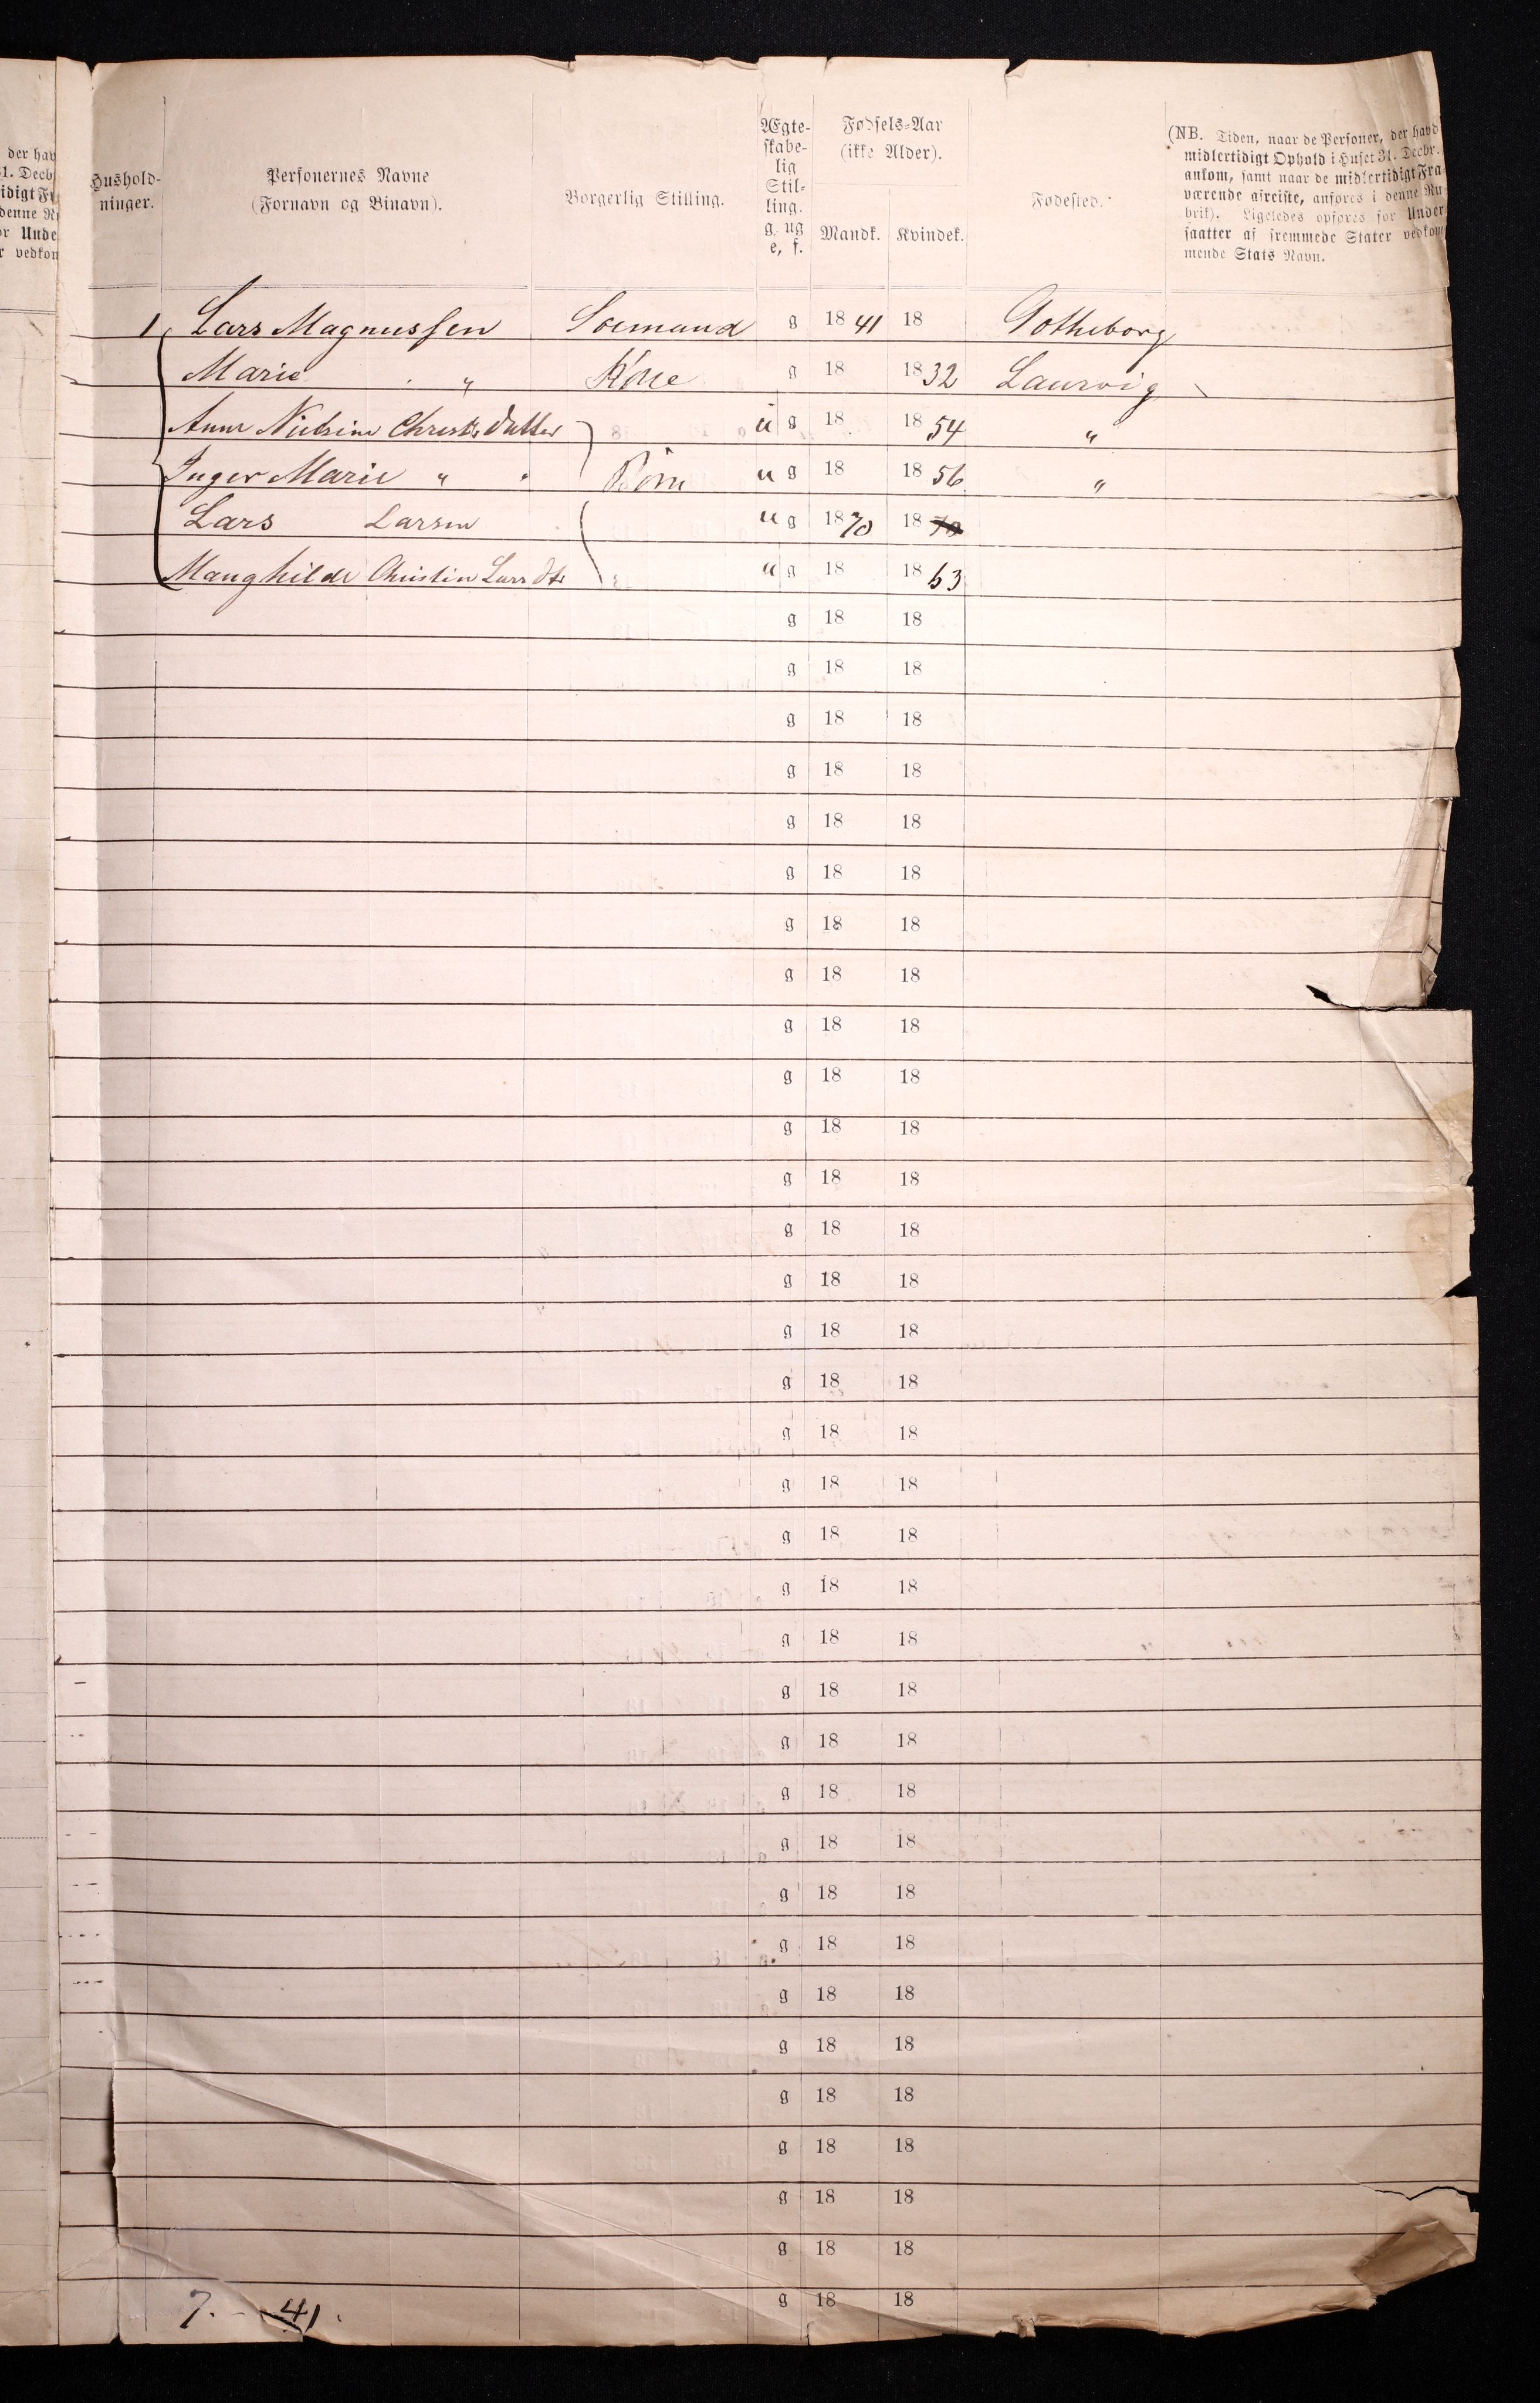 der hav
31. Decb
idigt Fr
denne R
or Unde
r vedkon
Hushold-
ninger.
Personernes Navne
(Fornavn og Binavn).
Borgerlig Stilling.
Ægte-
skabe-
lig
Stil-
ling.
g. ug
e, f.
Fødsels-Aar
(ikke Alder).
Mandk. Kvindek.
Fødested.
(NB. Tiden, naar de Personer, der havd
midlertidigt Ophold i Huset 31. Decbr.
ankom, samt naar de midlertidigt Fra-
værende afreiste, anføres i denne Ru-
brik). Ligeledes opføres for Under-
saatter af fremmede Stater vedkom-
mende Stats Navn.
1 Lars Magnussen Søemand g 1841 18 Gotheborg
Marie " Kone g 18 1832 Laurvig
Anne Nielsine Christs datter u g 18 1854 "
Inger Marie " " Børn u g 18 1856 "
Lars Larsen u g 1870 18 70
Manghilde Christin Larsdtr u g 18 1863
g 18 18
g 18 18
g 18 18
g 18 18
g 18 18
g 18 18
g 18 18
g 18 18
g 18 18
g 18 18
g 18 18
g 18 18
g 18 18
g 18 18
g 18 18
g 18 18
g 18 18
g 18 18
g 18 18
g 18 18
g 18 18
g 18 18
g 18 18
g 18 18
g 18 18
g 18 18
g 18 18
g 18 18
g 18 18
g 18 18
g 18 18
g 18 18
g 18 18
g 18 18
7. – 41.